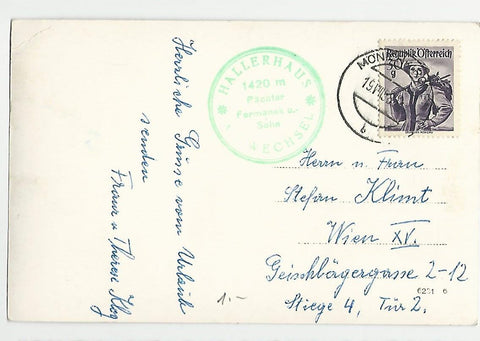 Herzliche Grüsse vom Urlaub
senden
Franz u. Therese
HALLERHAUS
1420 m
Pächter
Formanek u.
Sohn
WECHSEL
Republik Österreich
MÖNICH
Herrn u. Frau
Stefan Klimt
Wien XV.
Geischlägergasse 2-12
Stiege 4, Tür 2.
1.-
6231 6